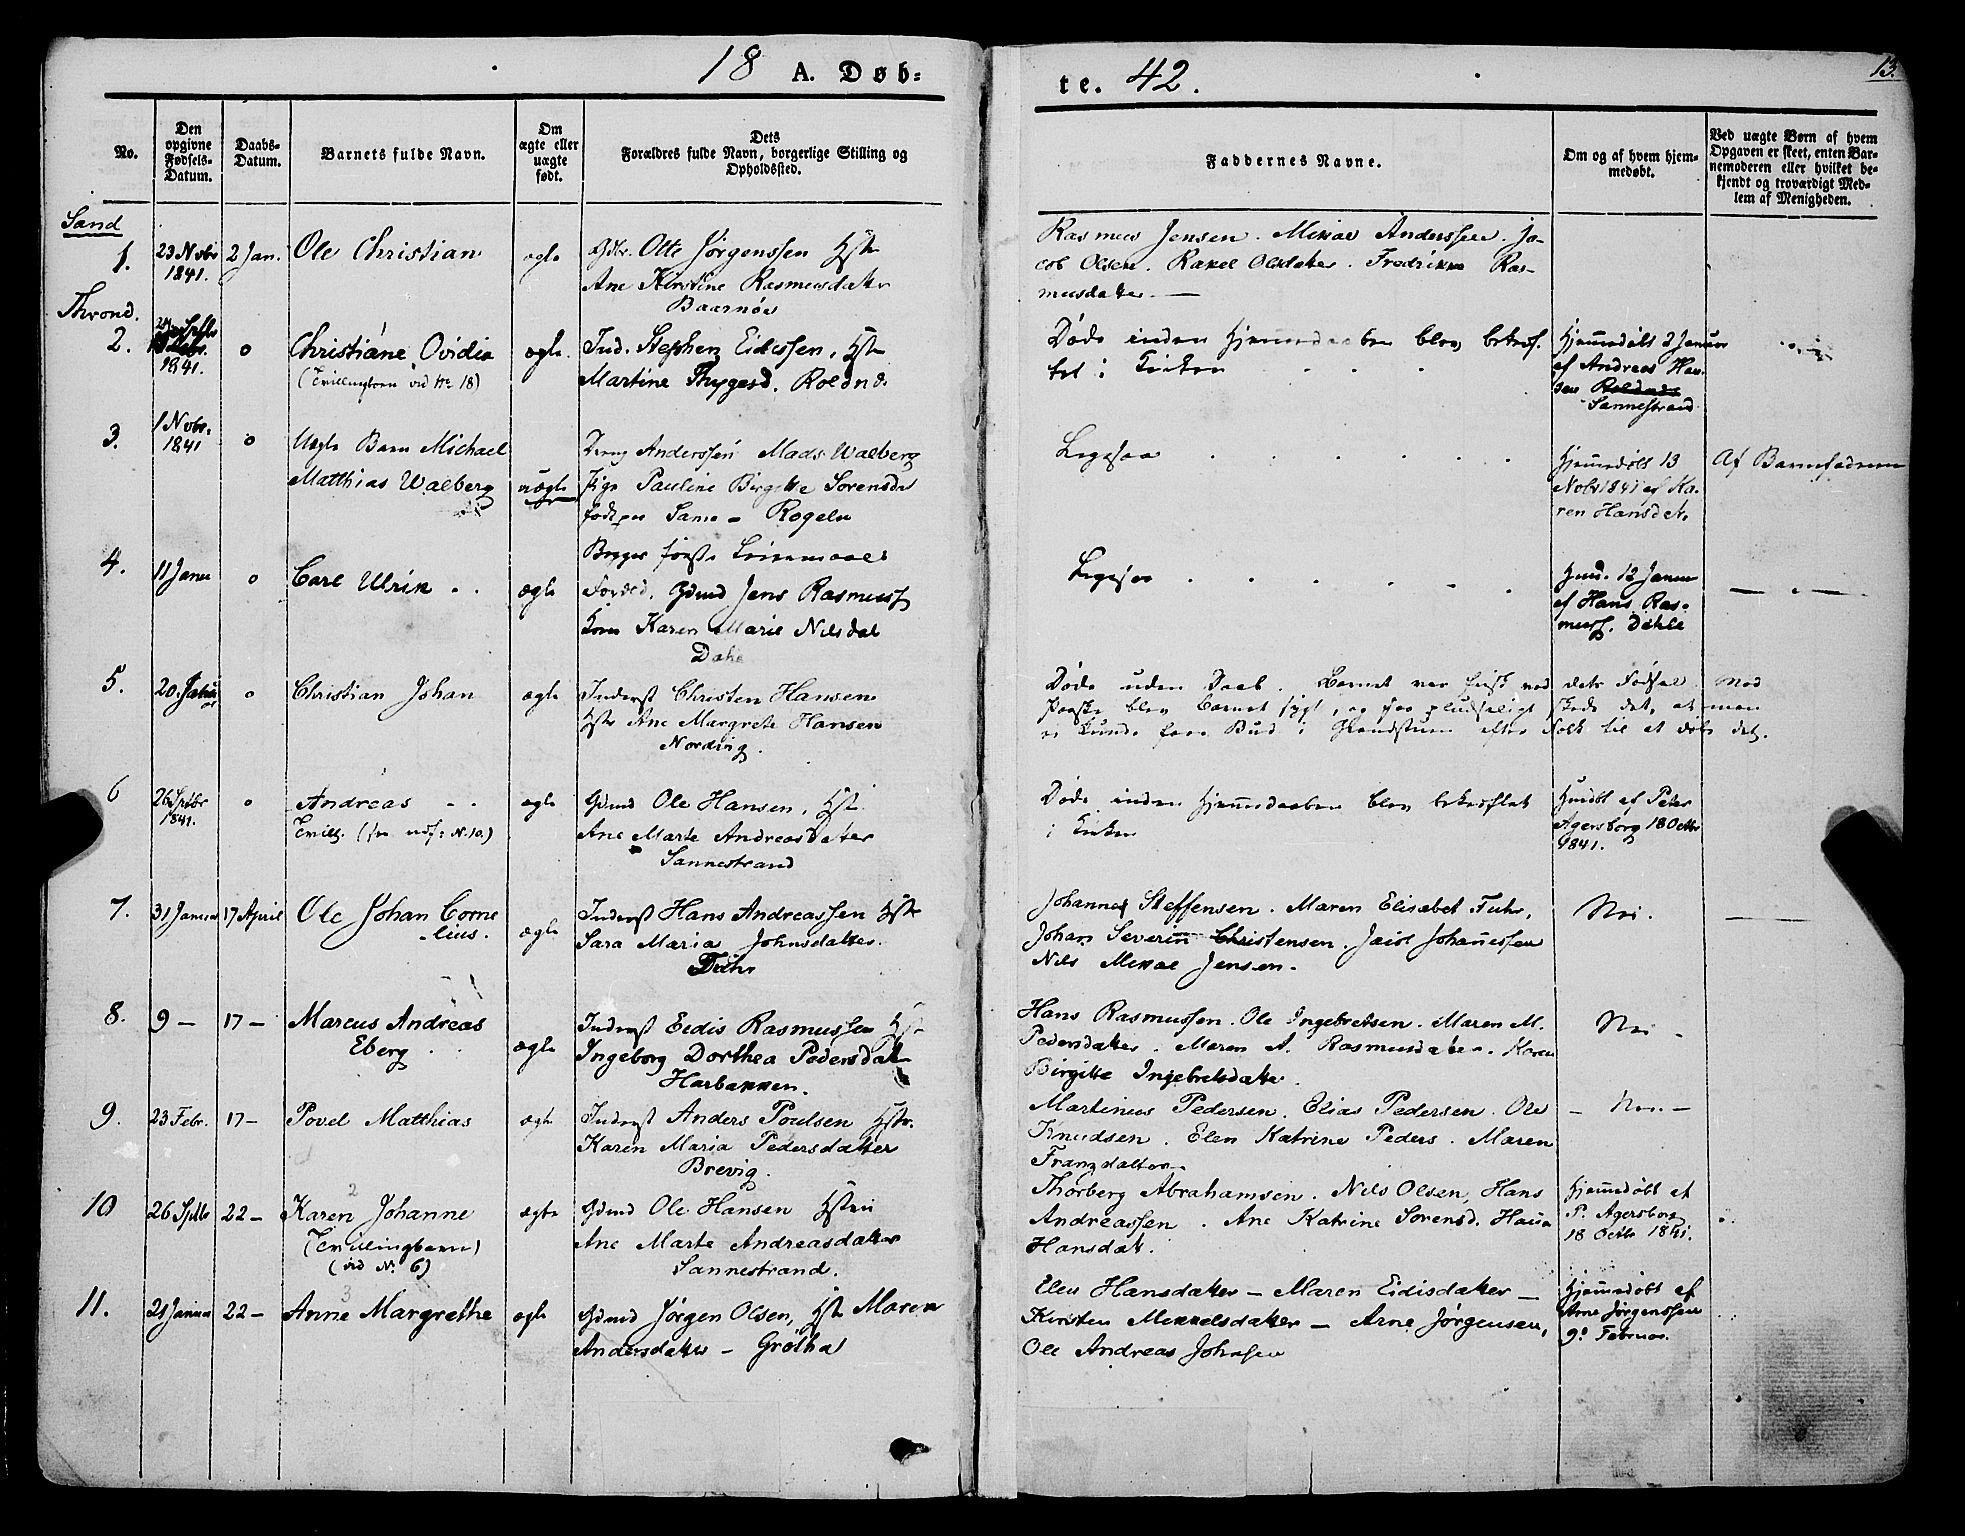 18 A. Døb=
te. 42.
13.
No.
Den opgivne Fødsels-Datum.
Daabs-Datum.
Barnets fulde Navn.
Om ægte eller uægte født.
Dets Forældres fulde Navn, borgerlige Stilling og Opholdssted.
Faddernes Navne.
Om og af hvem hjemmedøbt.
Ved uægte Børn af hvem Opgaven er skeet, enten Barnemoderen eller hvilket bekjendt og troværdigt Medlem af Menigheden.
Sand
1.
23 Nobr
1841.
2 Jan.
Ole Christian
ægte
Otte Jørgenssen Hst
Ane Kirstine Rasmusdatter
Baarnøes
Rasmus Jensen. Mikael Anderssen. Ja-
cob Olsen. Rakel Olsdatter. Fredrikke Ras-
musdatter. —
Thrond.
2.
1841.
o
Christiane Ovidia
(Tvillingbarn vid No 18)
ægte.
Ind. Stephen Eidissen, Hst
Martine Thygesd. Roldnes
Døde inden Hjemmedaaben blev bekræf-
tet i Kirken
Hjemmedøbt 2 Januar
af Andreas Han-
sen
Sannestrand
3.
1 Nobr.
1841
o
Uægte Barn Michael
Matthias Walberg
uægte
Dreng Anderssen Mads Walberg
Pige Pauline Birgitte Sørensdr
Rogeln
Begges første Leiermaal
Ligesaa
Hjemmedøbt 13
Nobr 1841 af Ka-
ren Hansdatr
Af Barnefaderen
4.
11 Janu
o
Carl Ulrik
ægte
Gdmd Jens Rasmuss
Kone Karen Marie Nilsdat
Ligesaa
Hmd. 12 Januar
af Hans Ras-
muss. Dahle
5.
20. Januar
o
Christian Johan
ægte
Inderst Christen Hansen
Hstr Ane Margrete Hansen
Nording.
Døde uden Daab. Barnet var friskt ved dets Fødsel. Med
blev Barnet sygt, og saa pludseligt skede det, at man
ei kunde faae Bud i Grandstuen efter Folk til at døbe det.
6
26 Septbr
1841.
o
Andreas
Tvill. (N. 10.)
ægte
Gdmd Ole Hansen, Hst.
Ane Marte Andreasdatter
Sannestrand
Døde inden Hjemmedaaben blev bekræftet
i Kirken
Hmdøbt af Peter
Agersborg 18 Octbr
1841.
7.
31 Januar
17 April
Ole Johan Corne
-lius.
ægte
Inderst Hans Andreassen Hstr
Sara Maria Johnsdatter.
Fuhr
Johannes Steffensen. Maren Elisabet Fuhr.
Johan Severin Christensen. Jacob Johannessen
Nils Mikal Jensen.
Nei.
8.
9 —
17 —
Marcus Andreas
Eberg
ægte
Inderst Eidis Rasmussen Hst
Ingeborg Dorthea Pedersdatr
Harbakken.
Hans Rasmussen. Ole Ingebretsen. Maren M.
Pedersdatter. Maren A. Rasmusdatter. Karen
Birgitte Ingebretsdatter.
Nei
9.
23 Febr.
17 —
Povel Matthias
ægte
Inderst Anders Poulsen Hstr.
Karen Maria Pedersdatter
Brevig.
Martinus Pedersen. Elias Pedersen. Ole
Knudsen. Elen Katrine Peders. Maren
Franzdatter.
— Nei —
10
26 Septbr
22 —
Karen Johanne
(Tvillingbarn)
(vid No 6)
ægte
Gdmd Ole Hansen Hstru
Ane Marte Andreasdatter
Sannestrand.
Thorberg Abrahamsen. Nils Olsen, Hans
Andreassen. Ane Katrine Sørensd. Hanna
Hansdat.
Hjemmedøbt af
P. Agersborg
18 Octbr 1841.
11.
21 Januar
22 —
Anne Margrethe
ægte
Gdmd Jørgen Olsen, Hst Maren
Andersdatter — Grøtha
Elen Hansdatter — Maren Eidisdatter —
Kirsten Mikkelsdatter — Arne Jørgensen,
Ole Andreas Johnsen
Hjemmedøbt af
Arne Jørgenssen
9. Februar.